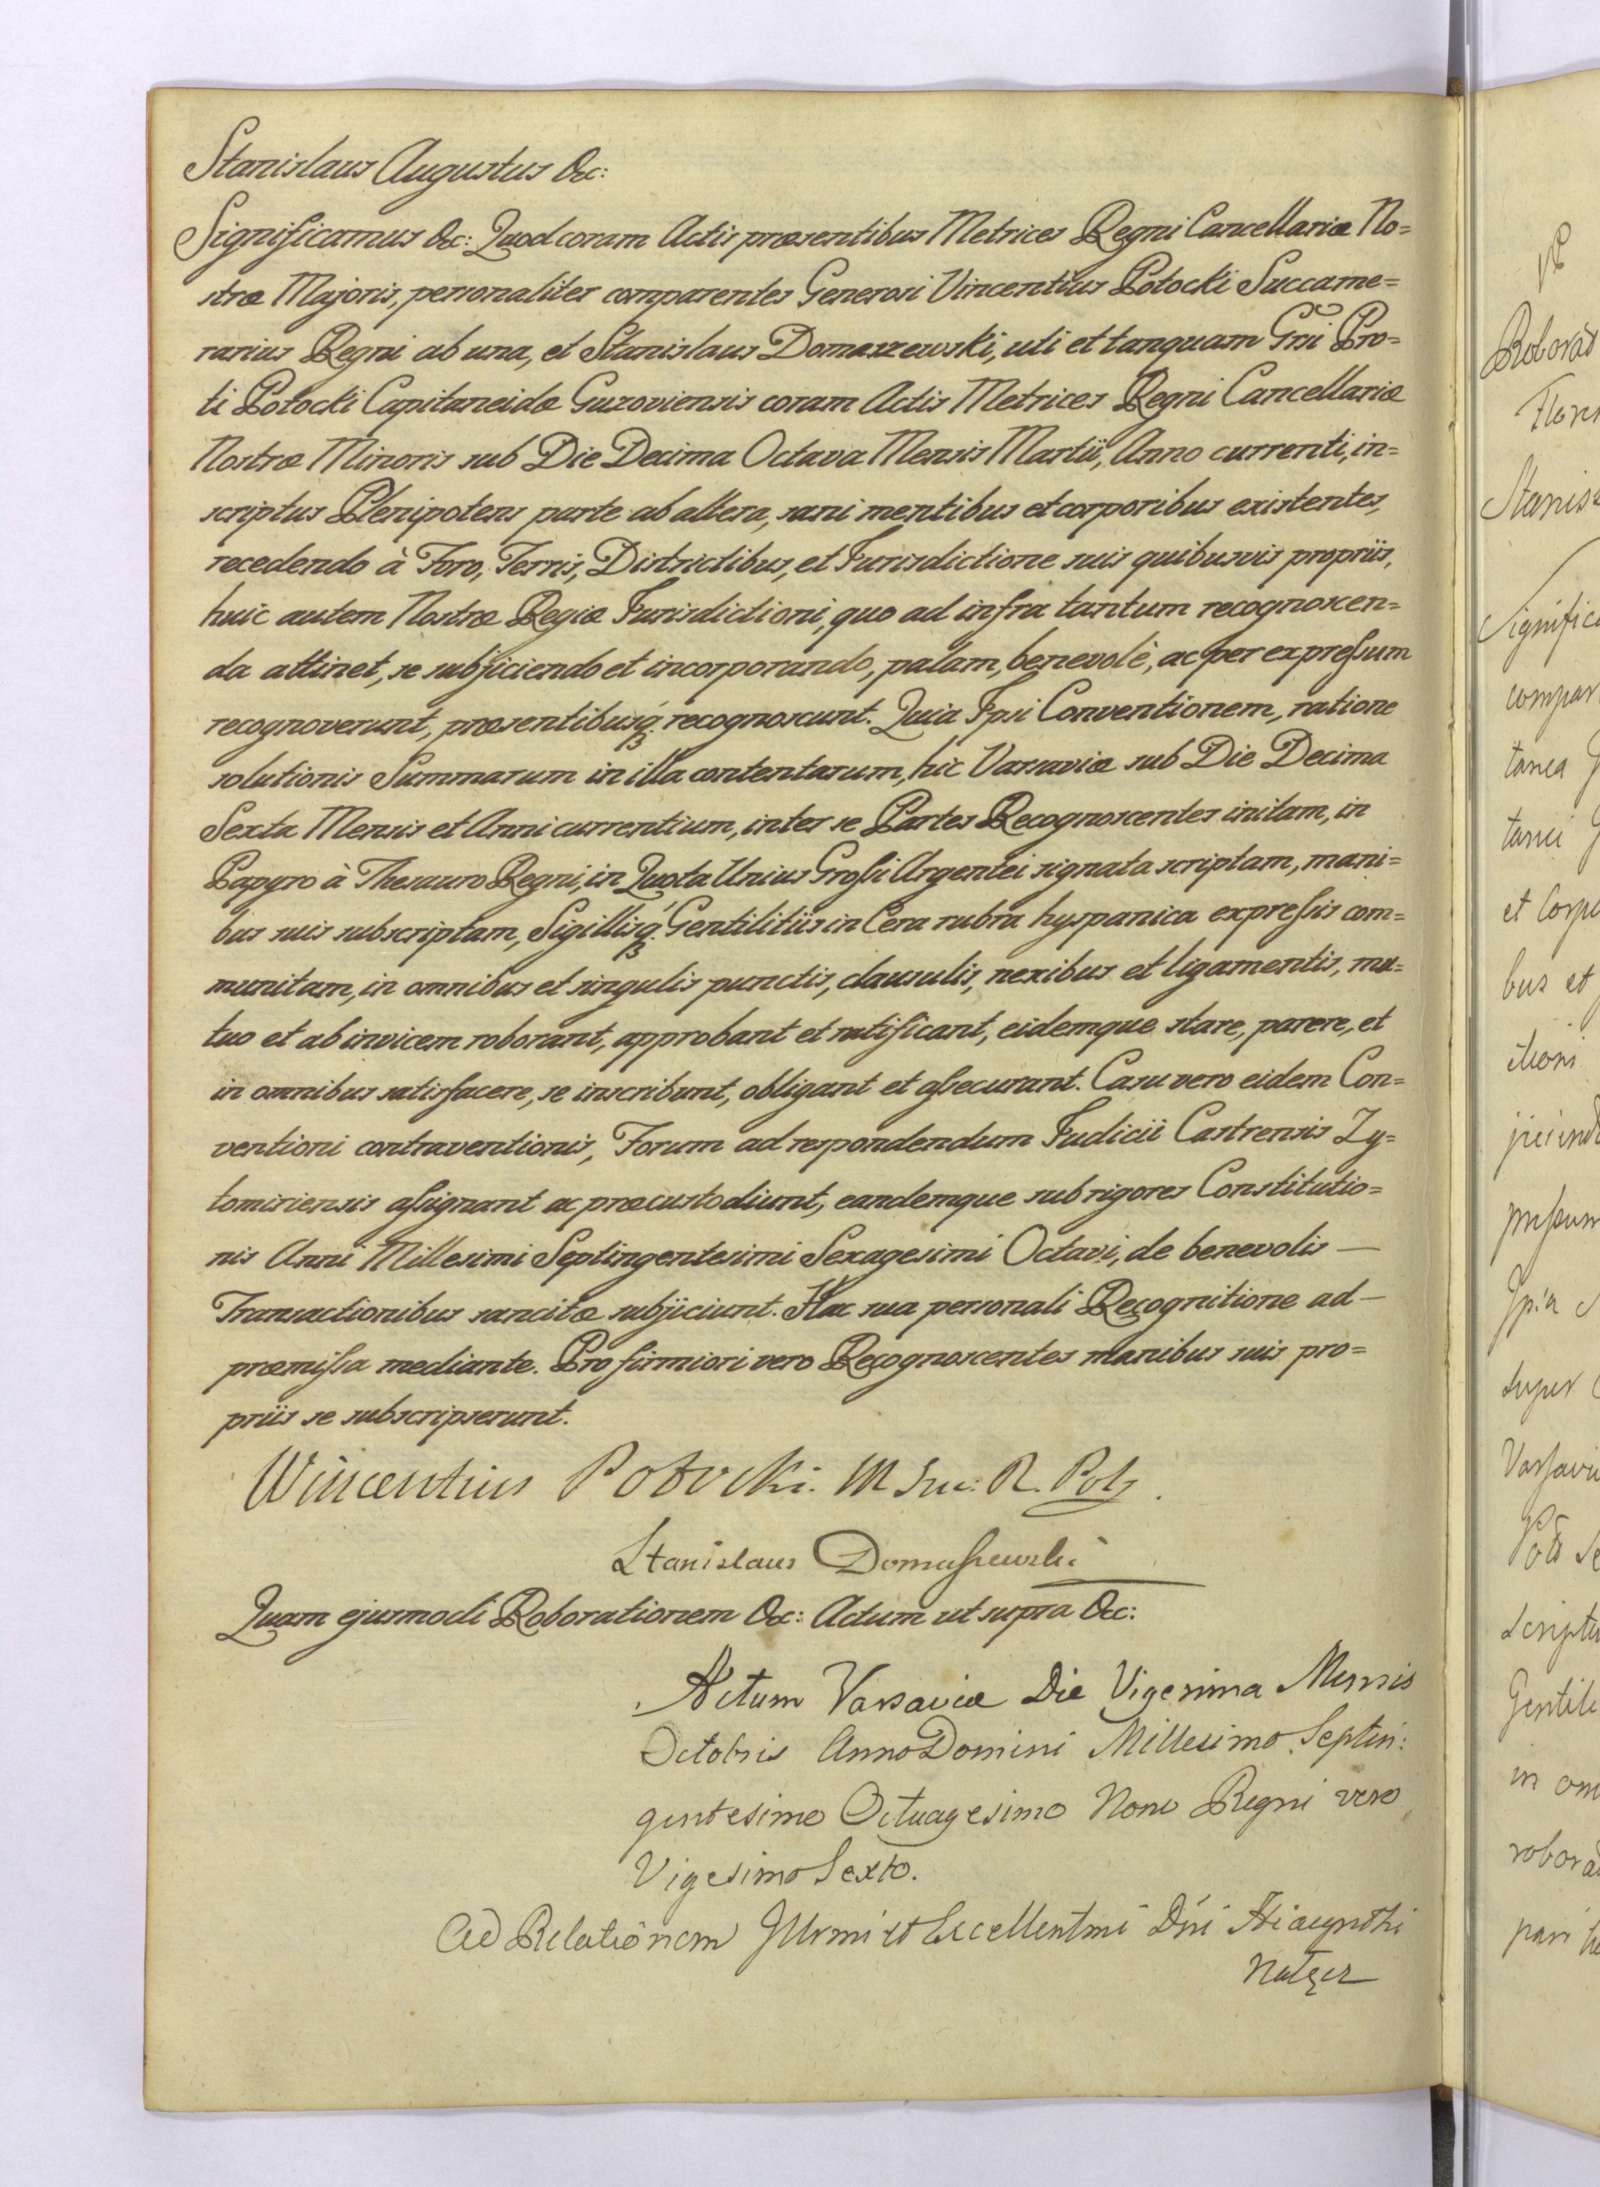 Stanislaus Augustus &c:
Significamus &c: Quod coram Actis præsentibus Metrices Regni Cancellariæ No=
stræ Majoris, personaliter comparentes Generosi Vincentius Potocki Succame=
rarius Regni ab una, et Stanislaus Domaszewski, uti et tanquam Grsi Pro=
ti Potocki Capitaneidæ Guzoviensis coram Actis Metrices Regni Cancellariæ
Nostræ Minoris sub Die Decima Octava Mensis Martii, Anno currenti, in=
scriptus Plenipotens parte ab altera, sani mentibus et corporibus existentes,
recedendo à Foro, Terris, Districtibus, et Jurisdictione suis quibusvis propriis,
huic autem Nostræ Regiæ Jurisdictioni, quo ad infra tantum recognoscen=
da attinet, se subjiciendo et incorporando, palam, benevolè, ac per expressum
recognoverunt, præsentibusq. recognoscunt. Quia Ipsi Conventionem, ratione
solutionis Summarum in illa contentarum, hic Varsaviæ sub Die Decima
Sexta Mensis et Anni currentium, inter se Partes Recognoscentes initam, in
Papyro à Thesauro Regni, in Quota Unius Grossi Argentei signata scriptam, mani=
bus suis subscriptam, Sigillisq. Gentilitiis in Cera rubra hyspanica expressis com=
munitam, in omnibus et singulis punctis, clausulis, nexibus et ligamentis, mu=
tuo et ab invicem roborant, approbant et ratificant, eidemque stare, parere, et
in omnibus satisfacere, se inscribunt, obligant et assecurant. Casu vero eidem Con=
ventioni contraventionis, Forum ad respondendum Judicii Castrensis Zy=
tomiriensis assignant ac præcustodiunt, eandemque sub rigores Constitutio=
nis Anni Millesimi Septingentesimi Sexagesimi Octavi, de benevolis —
Transactionibus sancitæ subjiciunt. Hac sua personali Recognitione ad —
præmissa mediante. Pro firmiori vero Recognoscentes manibus suis pro=
priis se subscripserunt.
Wincentius Potocki. M Suc: R. Pol
Stanislaus Domaszewski
Quam ejusmodi Roborationem &c: Actum ut supra &c:
Actum Varsaviæ Die Vigesima Mensis
Octobris Anno Domini Millesimo Septin:
gentesimo Octuagesimo Nono Regni vero
Vigesimo Sexto.
Ad Relationem Illrmi et Excellentmi Dni Hiacynthi
Roborat
Stanis
Significa
compar
tanea
tanei
et Corpo
bus et
itioni
jiciend
pressum
super
Varsavi
Scriptu
Gentili
in om
robora
pari